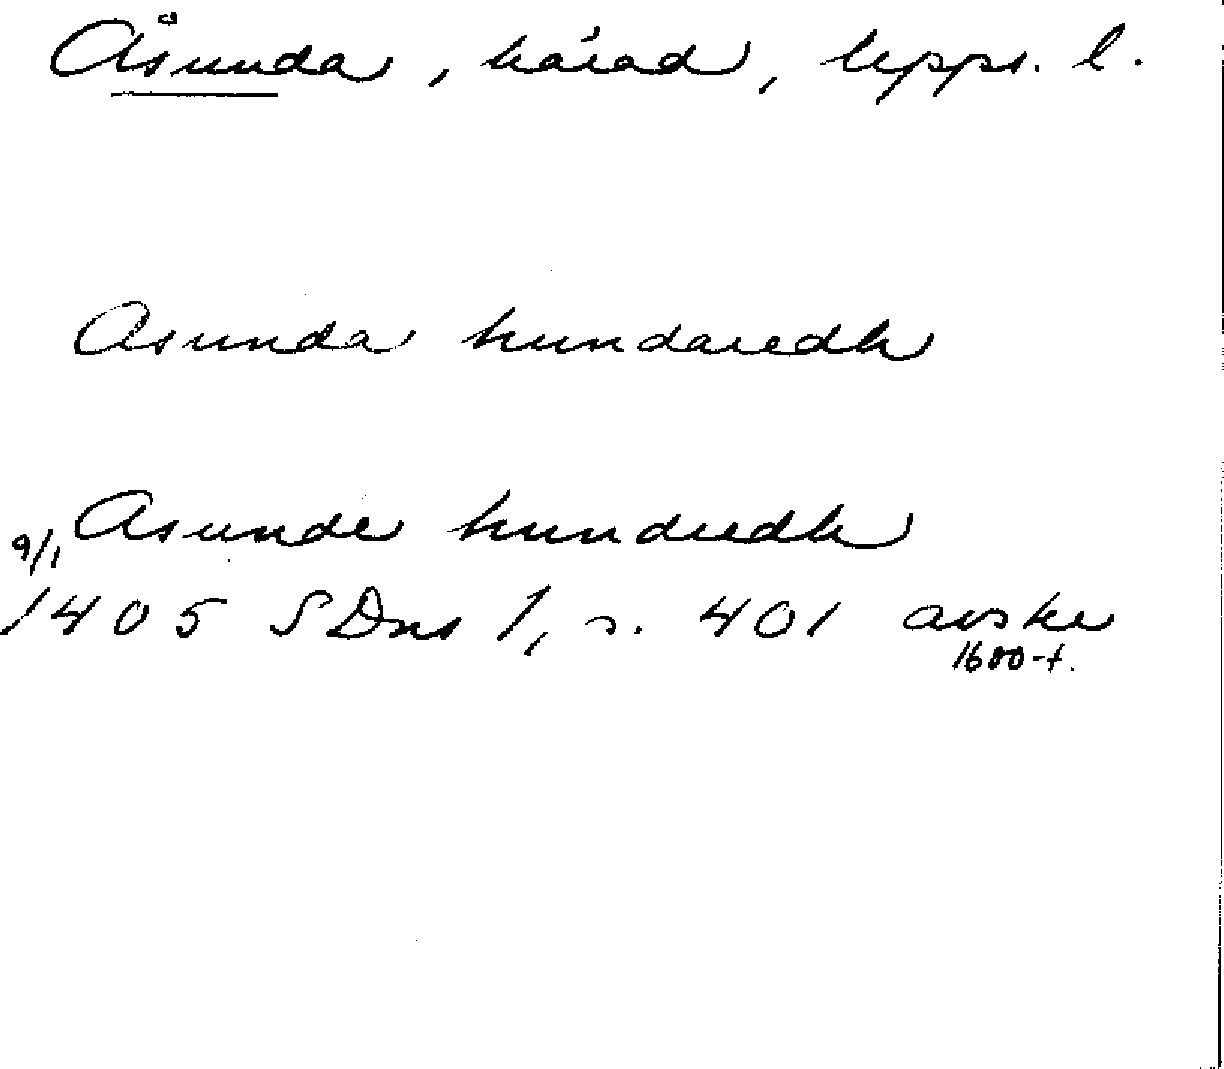 Åsunda, härad, Upps. l.
Asunda hundaredh
Asunde hundredh
9/1
1405 SDns 1, s. 401 avskr
1600-t.